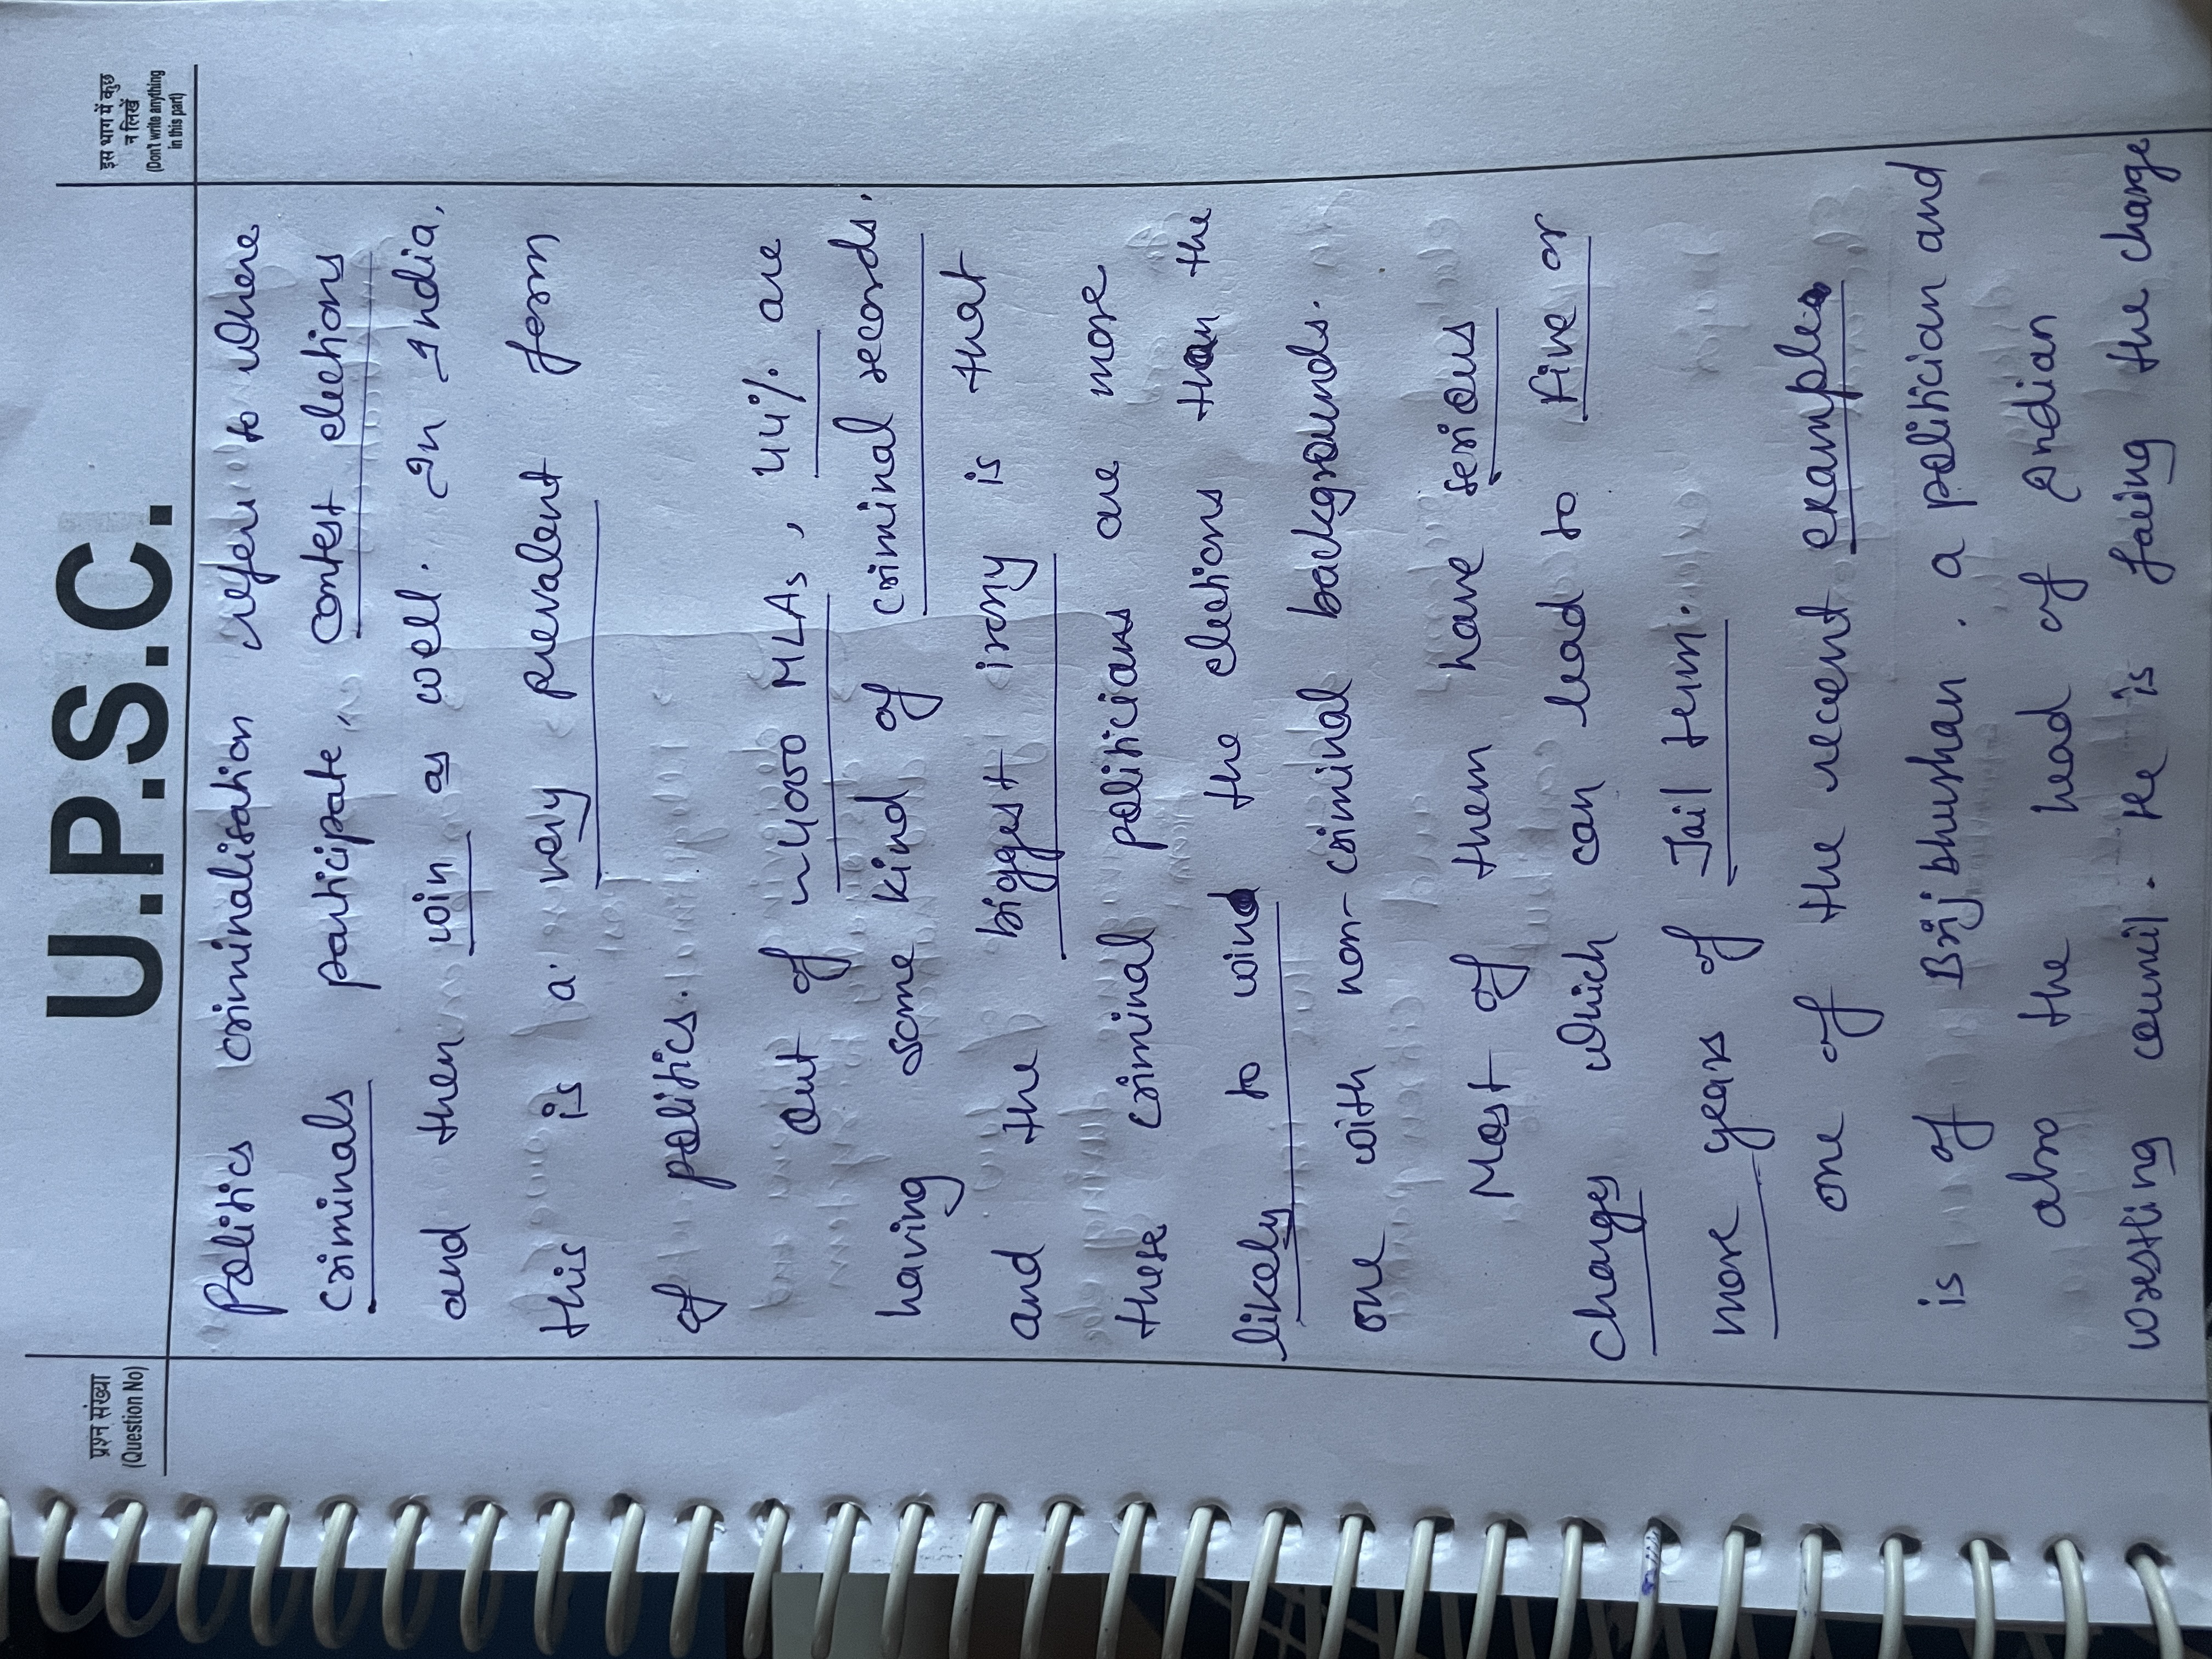 U.P.S.C.
प्रश्न संख्या
(Question No)
इस भाग में कुछ
न लिखें
(Don't write anything
in this part)
Politics criminalisation refers to where
criminals participate, contest elections
and then win as well. In India,
this is a very prevalent form
of politics.
Out of ~4000 MLAs, 44% are
having some kind of criminal records.
and the biggest irony is that
these criminal politicians are more
likely to win the elections than the
one with non-criminal backgrounds.
Most of them have serious
charges which can lead to five or
more years of Jail term.
one of the recent examples
is of Brijbhushan. a politician and
also the head of Indian
wrestling council. He is facing the charge